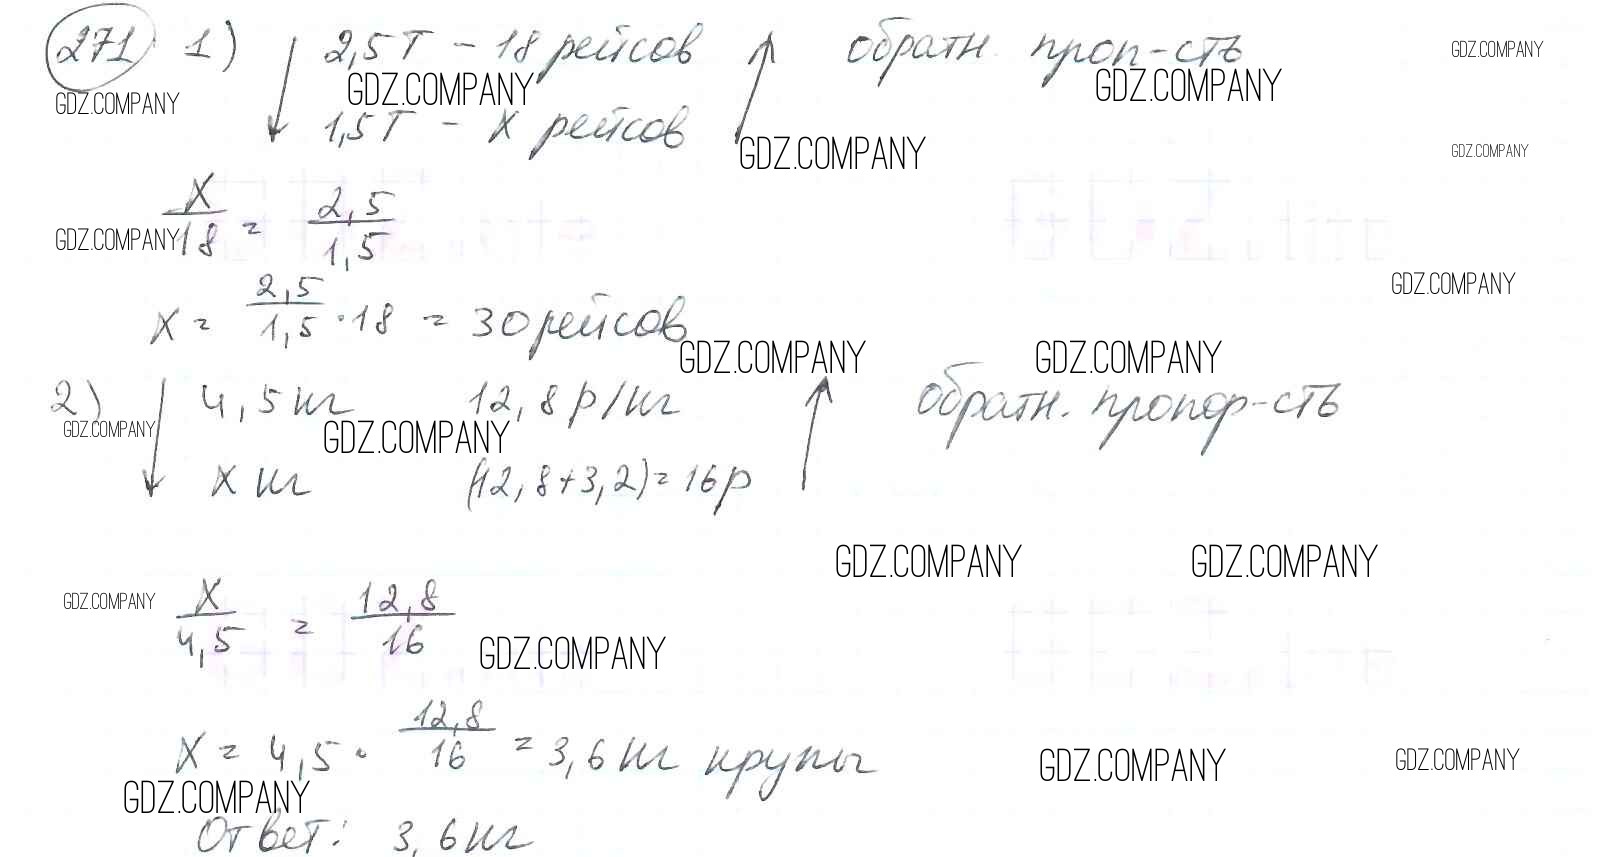 271 1) 2,5 т - 18 рейсов обратн. проп-сть GDZ.COMPANY
GDZ.COMPANY GDZ.COMPANY GDZ.COMPANY
1,5 т - x рейсов GDZ.COMPANY GDZ.COMPANY
x/18 = 2,5/1,5
GDZ.COMPANY
x = 2,5/1,5 · 18 = 30 рейсов GDZ.COMPANY
GDZ.COMPANY GDZ.COMPANY
2) 4,5 кг 12,8 р/кг обратн. пропор-сть
GDZ.COMPANY GDZ.COMPANY
x кг (12,8+3,2)=16р
GDZ.COMPANY GDZ.COMPANY
GDZ.COMPANY x/4,5 = 12,8/16
GDZ.COMPANY
x = 4,5 · 12,8/16 = 3,6 кг крупы GDZ.COMPANY GDZ.COMPANY
GDZ.COMPANY
Ответ: 3,6 кг